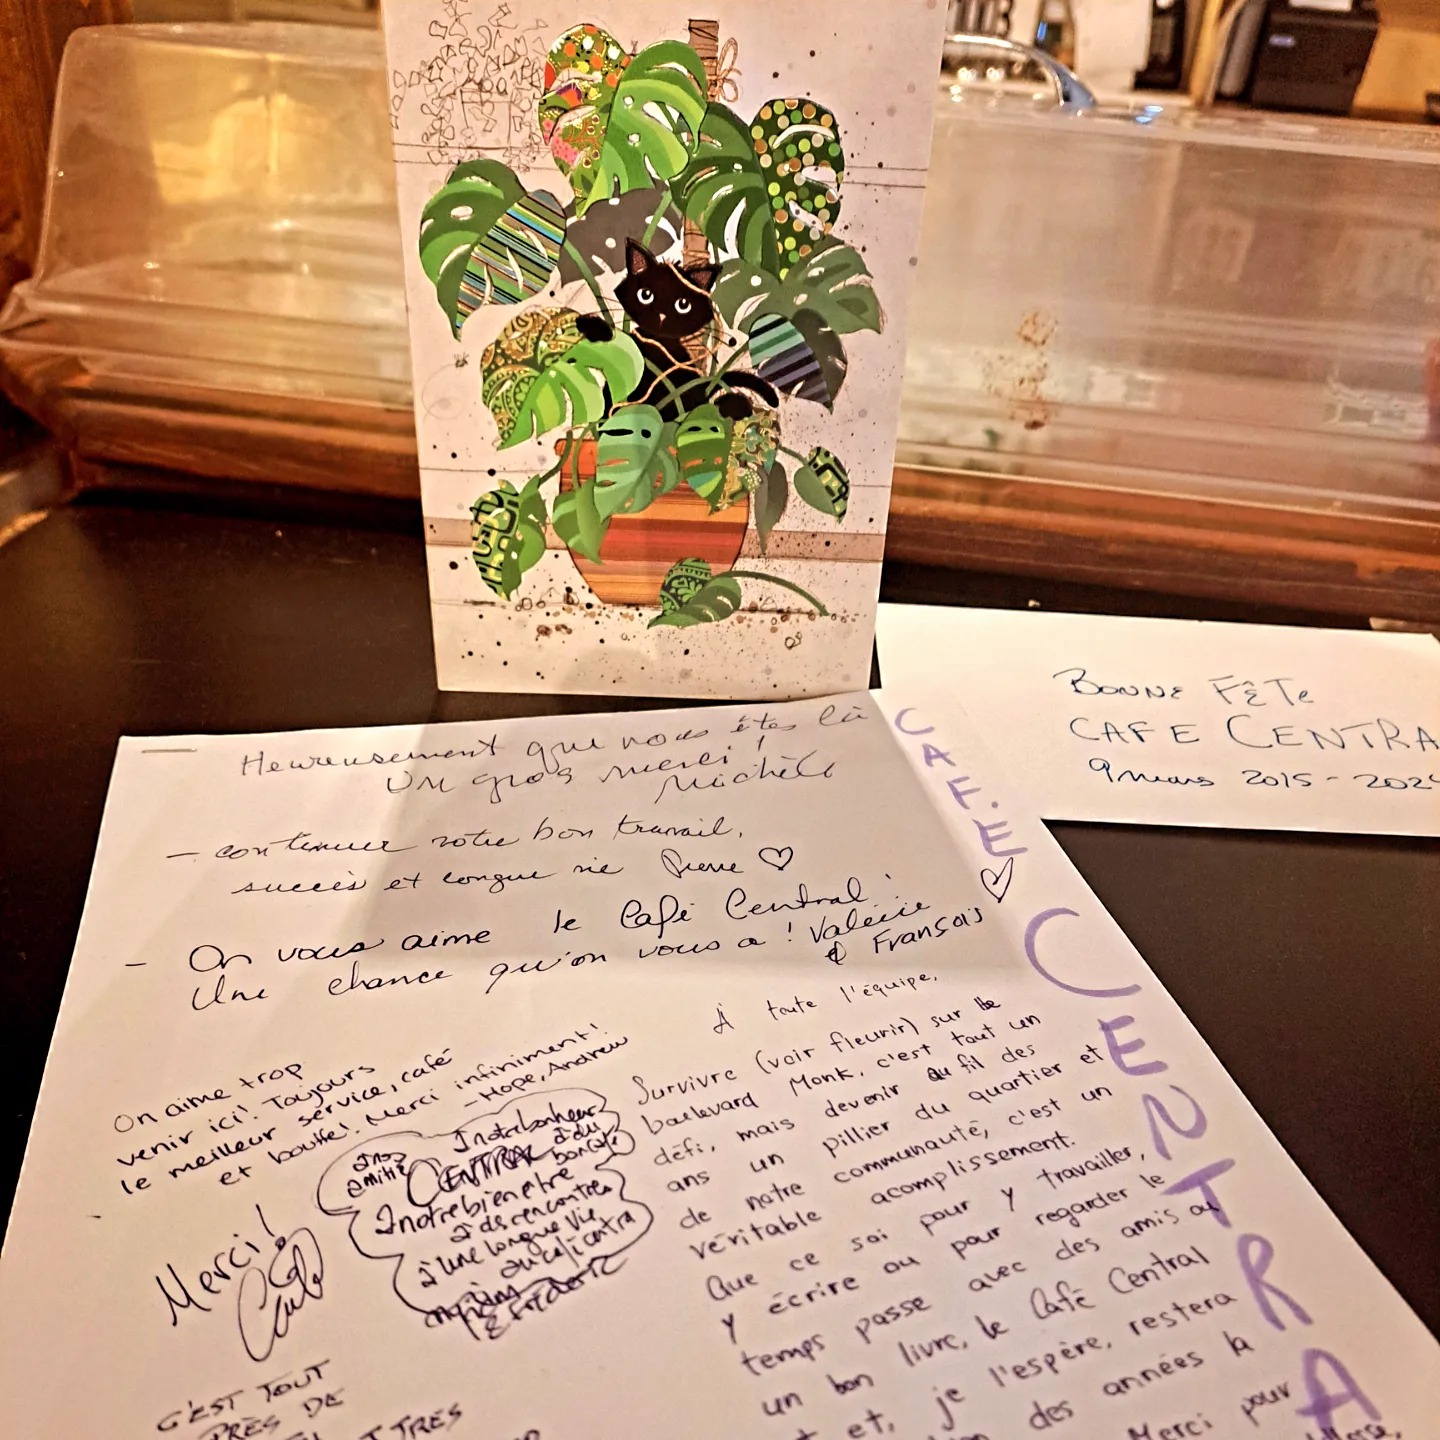 BONNE FÊTE
CAFE CENTRA
9 mars 2015 - 202
Heureusement que vous êtes là
Un gros merci!
Michèle
- continuer votre bon travail,
succès et longue vie Pierre ♡
- On vous aime le Café Central!
Une chance qu'on vous a! Valérie
& François
CAFÉ ♡
CENTRA
On aime trop
venir ici! Toujours
le meilleur service, café
et bouffe! Merci infiniment!
- Hope, Andrew
À toute l'équipe,
Survivre (voir fleurir) sur le
boulevard Monk, c'est tout un
défi, mais devenir au fil des
ans un pillier du quartier et
de notre communauté, c'est un
véritable acomplissement.
Que ce soi pour y travailler,
y écrire ou pour regarder le
temps passe avec des amis ou
un bon livre, le Café Central
et, je l'espère, restera
des années la
Merci pour
à nos
amitié
à notre bonheur
CENTRAL à du
bon café
à notre bien etre
à des rencontres
à une longue vie
au café centra
& Frédéric
Merci!
C'EST TOUT
PRÈS DE
TRÈS